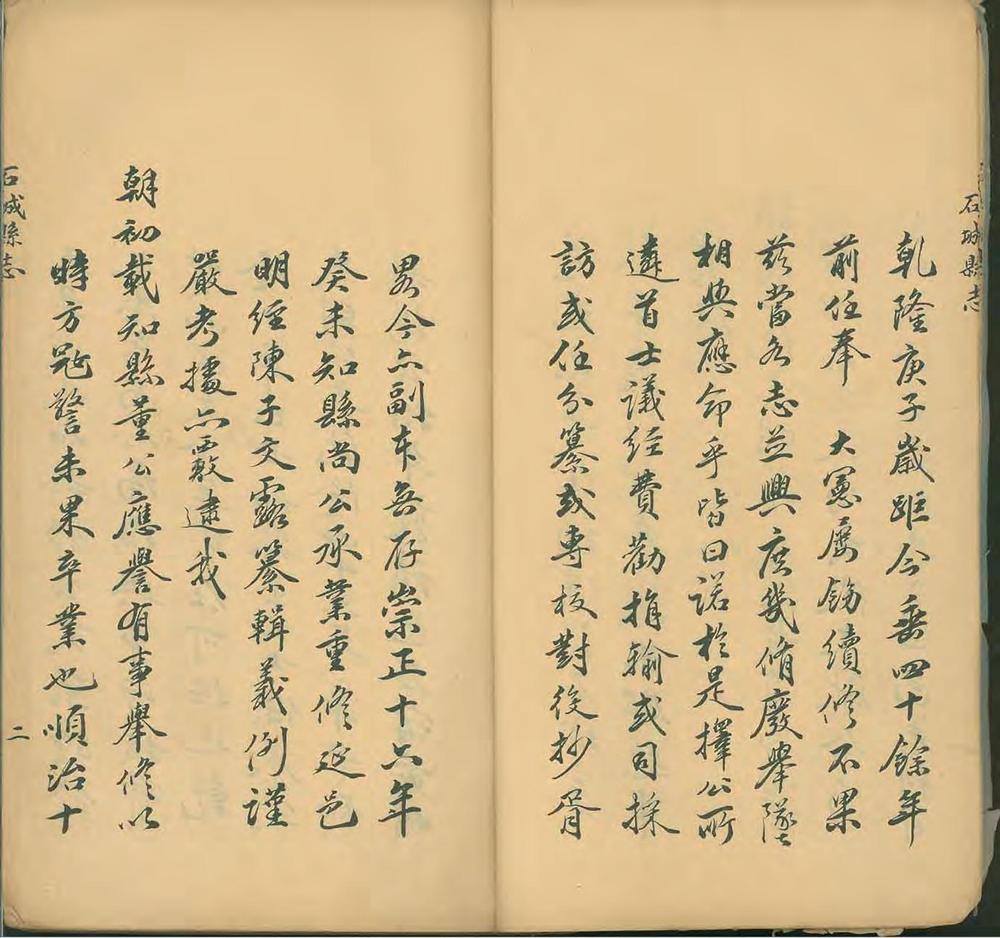 石城縣志
乾隆庚子歲距今垂四十餘年
前任奉 大憲屬飭續修不果
茲當各志並興庶幾脩廢舉墜
相與應命乎皆曰諾於是擇公所
遴首士議經費勸捐輸或司採
訪或任分纂或專校對從抄胥
畧今亦副本無存崇正十六年
癸未知縣尚公承業重修延邑
明經陳子文露纂輯義例謹
嚴考據亦覈逮我
朝初載知縣董公應譽有事舉修以
時方警未果卒業也順治十
石城縣志
二